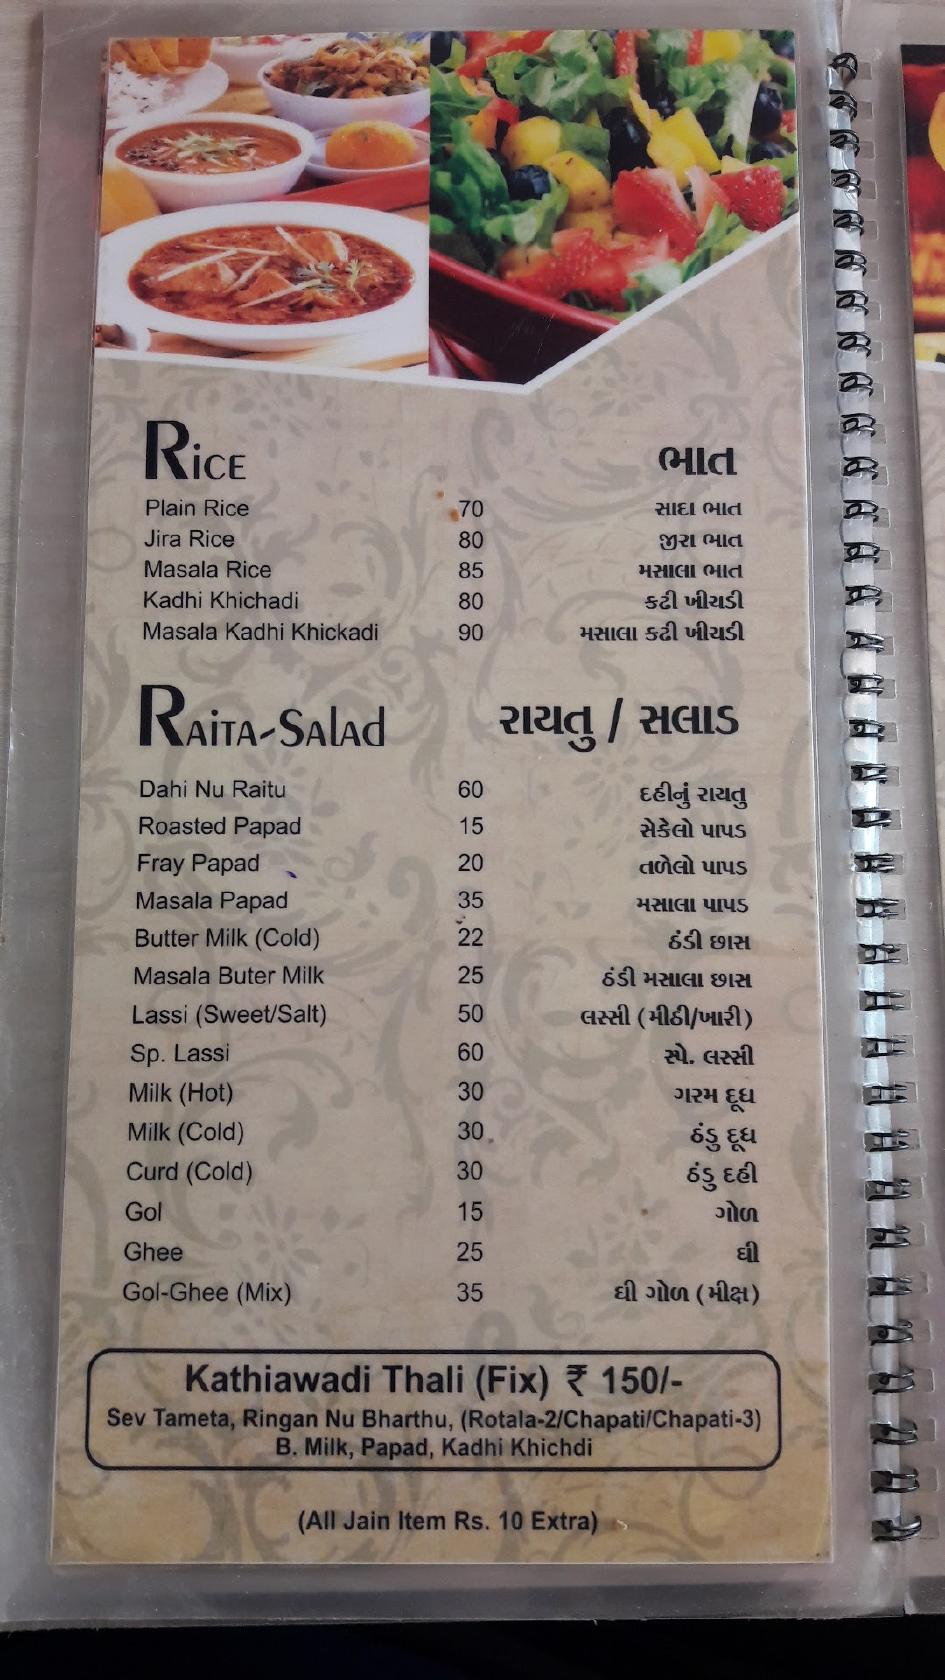 Rice ભાત
Plain Rice 70 સાદા ભાત
Jira Rice 80 જીરા ભાત
Masala Rice 85 મસાલા ભાત
Kadhi Khichadi 80 કઢી ખીચડી
Masala Kadhi Khickadi 90 મસાલા કઢી ખીચડી
Raita-Salad રાયતુ / સલાડ
Dahi Nu Raitu 60 દહીનું રાયતુ
Roasted Papad 15 સેકેલો પાપડ
Fray Papad 20 તળેલો પાપડ
Masala Papad 35 મસાલા પાપડ
Butter Milk (Cold) 22 ઠંડી છાસ
Masala Buter Milk 25 ઠંડી મસાલા છાસ
Lassi (Sweet/Salt) 50 લસ્સી (મીઠી/ખારી)
Sp. Lassi 60 સ્પે. લસ્સી
Milk (Hot) 30 ગરમ દૂધ
Milk (Cold) 30 ઠંડુ દૂધ
Curd (Cold) 30 ઠંડુ દહી
Gol 15 ગોળ
Ghee 25 ઘી
Gol-Ghee (Mix) 35 ઘી ગોળ (મીક્ષ)
Kathiawadi Thali (Fix) ₹ 150/-
Sev Tameta, Ringan Nu Bharthu, (Rotala-2/Chapati/Chapati-3)
B. Milk, Papad, Kadhi Khichdi
(All Jain Item Rs. 10 Extra)